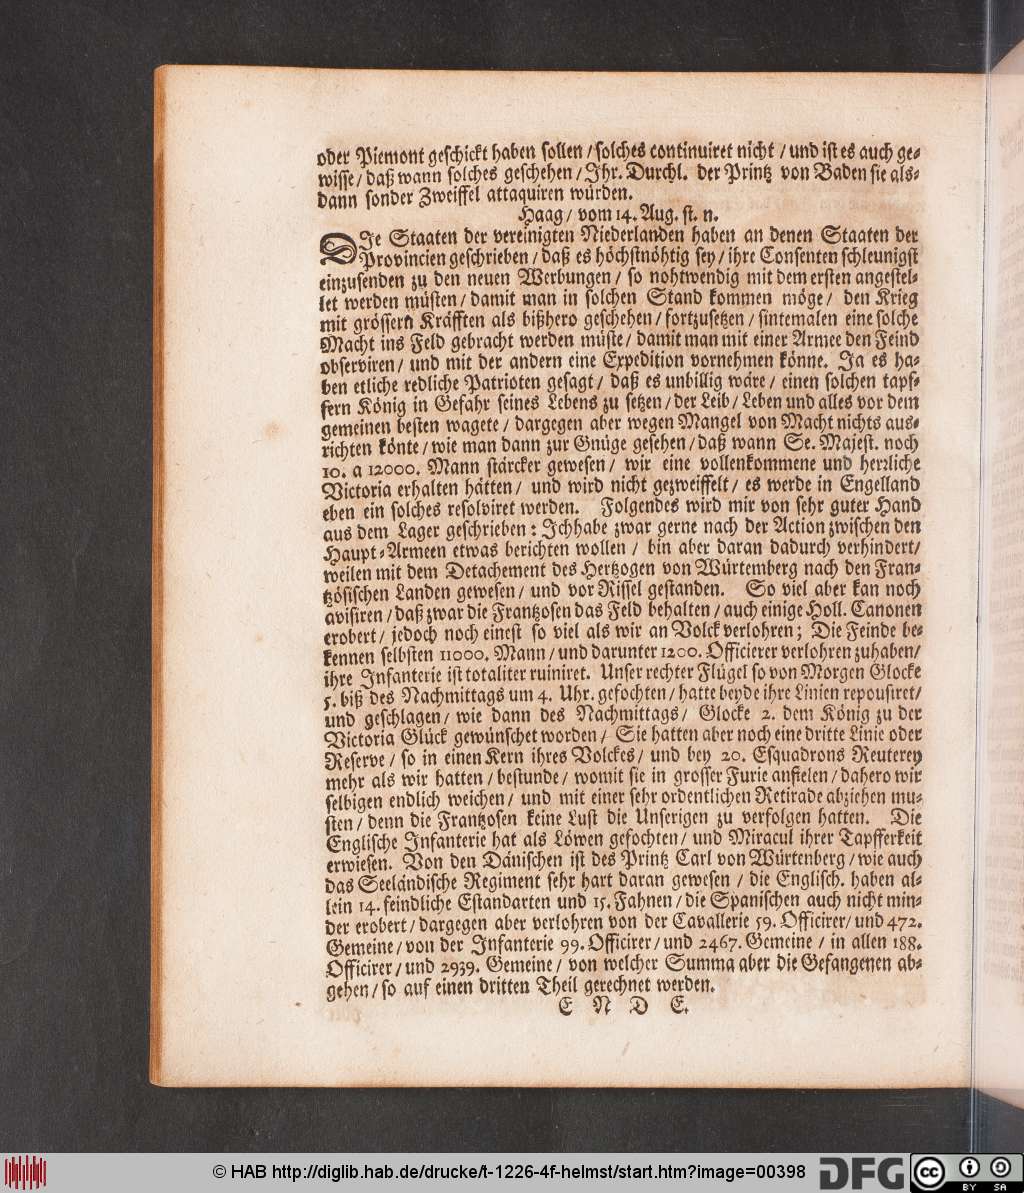 oder Piemont geschickt haben sollen / solches continuiret nicht / und ist es auch ge-
wisse / daß wann solches geschehen / Ihr. Durchl. der Printz von Baden sie als-
dann sonder Zweiffel attaquiren würden.
Haag / vom 14. Aug. st. n.
DIe Staaten der vereinigten Niederlanden haben an denen Staaten der
Provincien geschrieben / daß es höchstnöhtig sey / ihre Consenten schleunigst
einzusenden zu den neuen Werbungen / so nohtwendig mit dem ersten angestel-
let werden müsten / damit man in solchen Stand kommen möge / den Krieg
mit grössern Kräfften als bißhero geschehen / fortzusetzen / sintemalen eine solche
Macht ins Feld gebracht werden müste / damit man mit einer Armee den Feind
observiren / und mit der andern eine Expedition vornehmen könne. Ja es ha-
ben etliche redliche Patrioten gesagt / daß es unbillig wäre / einen solchen tapf-
fern König in Gefahr seines Lebens zu setzen / der Leib / Leben und alles vor dem
gemeinen besten wagete / dargegen aber wegen Mangel von Macht nichts aus-
richten könte / wie man dann zur Gnüge gesehen / daß wann Se. Majest. noch
10. a 12000. Mann stärcker gewesen / wir eine vollenkommene und herrliche
Victoria erhalten hätten / und wird nicht gezweiffelt / es werde in Engelland
eben ein solches resolviret werden. Folgendes wird mir von sehr guter Hand
aus dem Lager geschrieben : Ich habe zwar gerne nach der Action zwischen den
Haupt-Armeen etwas berichten wollen / bin aber daran dadurch verhindert /
weilen mit dem Detachement des Hertzogen von Würtemberg nach den Fran-
tzösischen Landen gewesen / und vor Rissel gestanden. So viel aber kan noch
avisiren / daß zwar die Frantzosen das Feld behalten / auch einige Holl. Canonen
erobert / jedoch noch einest so viel als wir an Volck verlohren; Die Feinde be-
kennen selbsten 11000. Mann / und darunter 1200. Officierer verlohren zu haben /
ihre Infanterie ist totaliter ruiniret. Unser rechter Flügel so von Morgen Glocke
5. biß des Nachmittags um 4. Uhr. gefochten / hatte beyde ihre Linien repousiret /
und geschlagen / wie dann des Nachmittags / Glocke 2. dem König zu der
Victoria Glück gewünschet worden / Sie hatten aber noch eine dritte Linie oder
Reserve / so in einen Kern ihres Volckes / und bey 20. Esquadrons Reuterey
mehr als wir hatten / bestunde / womit sie in grosser Furie anfielen / dahero wir
selbigen endlich weichen / und mit einer sehr ordentlichen Retirade abziehen mu-
sten / denn die Frantzosen keine Lust die Unserigen zu verfolgen hatten. Die
Englische Infanterie hat als Löwen gefochten / und Miracul ihrer Tapfferkeit
erwiesen. Von den Dänischen ist des Printz Carl von Würtenberg / wie auch
das Seeländische Regiment sehr hart daran gewesen / die Englisch. haben al-
lein 14. feindliche Estandarten und 15. Fahnen / die Spanischen auch nicht min-
der erobert / dargegen aber verlohren von der Cavallerie 59. Officirer / und 472.
Gemeine / von der Infanterie 99. Officirer / und 2467. Gemeine / in allen 188.
Officirer / und 2939. Gemeine / von welcher Summa aber die Gefangenen ab-
gehen / so auf einen dritten Theil gerechnet werden.
E N D E.
© HAB http://diglib.hab.de/drucke/t-1226-4f-helmst/start.htm?image=00398
DFG cc BY SA